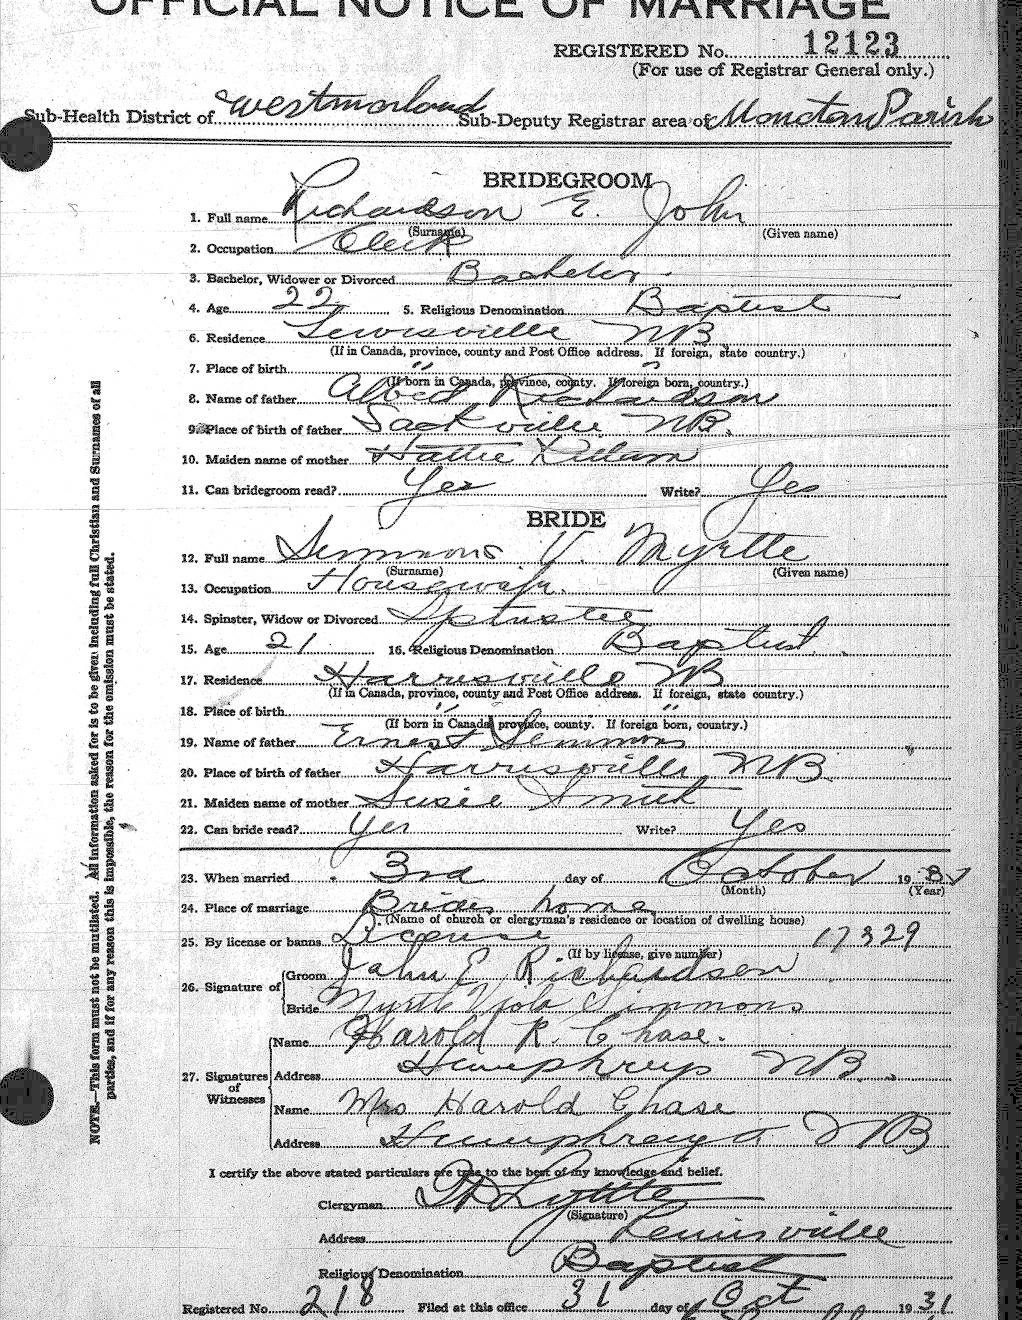 OFFICIAL NOTICE OF MARRIAGE
REGISTERED No. 12123
(For use of Registrar General only.)
Sub-Health District of Westmorland Sub-Deputy Registrar area of Moncton Parish
BRIDEGROOM
1. Full name Richardson E. John
(Surname) (Given name)
2. Occupation Clerk
3. Bachelor, Widower or Divorced Bachelor
4. Age 22 5. Religious Denomination Baptist
6. Residence Lewisville NB
(If in Canada, province, county and Post Office address. If foreign, state country.)
7. Place of birth " "
(If born in Canada, province, county. If foreign born, country.)
8. Name of father Albert Richardson
9. Place of birth of father Sackville NB.
10. Maiden name of mother Hattie
11. Can bridegroom read? Yes Write? Yes
BRIDE
12. Full name Simmons V. Myrtle
(Surname) (Given name)
13. Occupation Housewife.
14. Spinster, Widow or Divorced
15. Age 21 16. Religious Denomination Baptist
17. Residence Harrisville NB
(If in Canada, province, county and Post Office address. If foreign, state country.)
18. Place of birth " "
(If born in Canada, province, county. If foreign born, country.)
19. Name of father Ernest Simmons
20. Place of birth of father Harrisville NB
21. Maiden name of mother Susie Smith
22. Can bride read? Yes Write? Yes
23. When married 3rd day of October 19
(Month) (Year)
24. Place of marriage Brides home
(Name of church or clergyman's residence or location of dwelling house)
25. By license or banns License 17329
(If by license, give number)
26. Signature of Groom John E Richardson
Bride Myrtle Viola Simmons
27. Signatures of Witnesses Name Harold R. Chase.
Address Humphreys NB.
Name Mrs Harold Chase
Address Humphreys NB
I certify the above stated particulars are true to the best of my knowledge and belief.
Clergyman Lyttle
(Signature)
Address Lewisville
Religious Denomination Baptist
Registered No. 218 Filed at this office 31 day of Oct 19 31
NOTE.—This form must not be mutilated. All information asked for is to be given including full Christian and Surnames of all
parties, and if for any reason this is impossible, the reason for the omission must be stated.